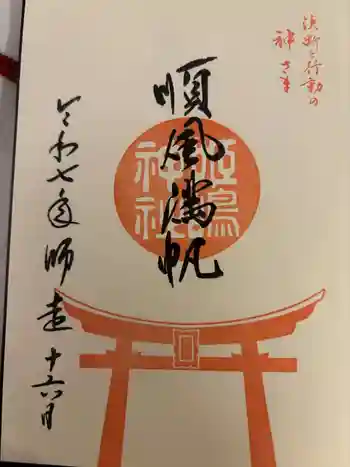 決断と行動の
神さま
順風満帆
神社
令和七年師走十六日